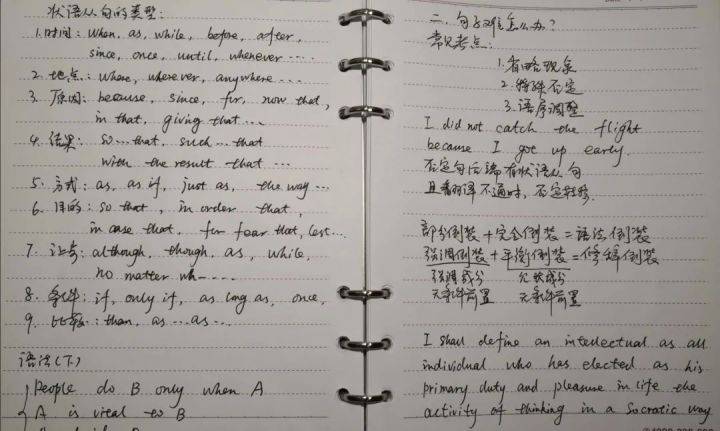 状语从句的类型:
1.时间: when, as, while, before, after,
since, once, until, whenever ……
2. 地点: where, wherever, anywhere …
3. 原因: because, since, for, now that,
in that, giving that …
4. 结果: so … that, such … that
with the result that …
5. 方式: as, as if, just as, the way …
6. 目的: so that, in order that,
in case that, for fear that, lest …
7. 让步: although, though, as, while,
no matter wh- ……
8. 条件: if, only if, as long as, once,
9. 比较: than, as … as …
语法(下)
People do B only when A
A is vital to B
二. 句子难怎么办?
常见考点:
1.省略现象
2.特殊否定
3.语序调整
I did not catch the flight
because I got up early.
否定句后端有状语从句
且翻译不通时, 否定转移.
部分倒装+完全倒装=语法倒装
强调倒装+平衡倒装=修辞倒装
强调成分
无条件前置
无条件前置
I shall define an intellectual as an
individual who has elected as his
primary duty and pleasure in life the
activity of thinking in a Socratic way